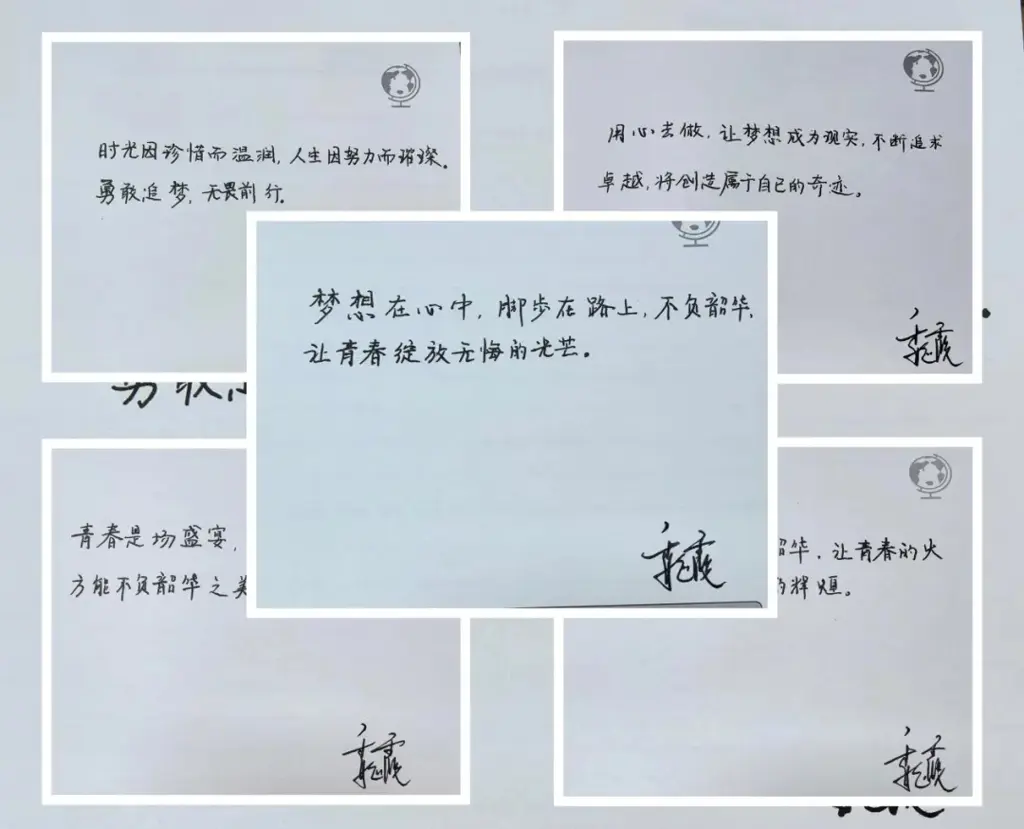 时光因珍惜而温润，人生因努力而璀璨。
勇敢追梦，无畏前行。
用心去做，让梦想成为现实，不断追求
卓越，将创造属于自己的奇迹。
梦想在心中，脚步在路上，不负韶华，
让青春绽放无悔的光芒。
青春是场盛宴，
方能不负韶华之美
韶华，让青春的火
的辉煌。